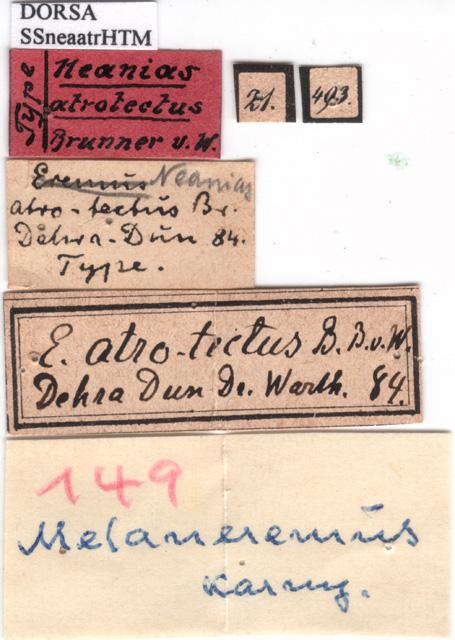 DORSA
SSneaatrHTM
Type
Neanias
atrotectus
Brunner v. W.
21.
493.
Eremus Neanias
atro-tectus Br.
Dehra-Dun 84.
Type.
E. atro-tectus B. B.v.W.
Dehra Dun Dr. Warth. 84.
149
Melaneremus
Karny.